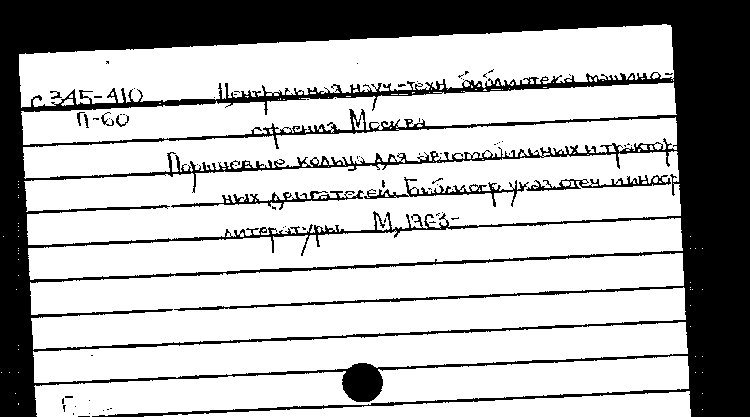 с 345-410 Центральная науч.-техн. библиотека машино-
П-60 строения Москва
Поршневые кольца для автомобильных и трактор-
ных двигателей. Библиогр. указ. отеч. и иностр.
литературы. М., 1963-
Г